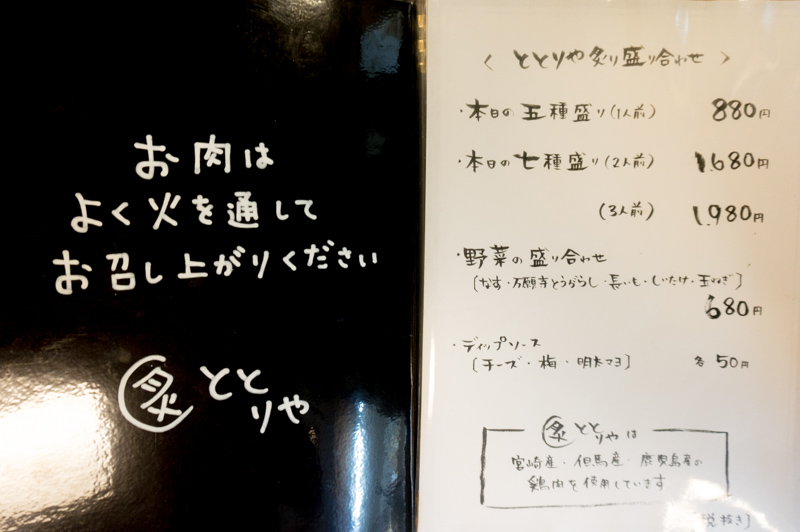 お肉は
よく火を通して
お召し上がりください
炙 ととりや
〈 ととりや炙り盛り合わせ 〉
・本日の五種盛り(1人前) 880円
・本日の七種盛り(2人前) 1,680円
(3人前) 1,980円
・野菜の盛り合わせ
[なす・万願寺とうがらし・長いも・しいたけ・玉ねぎ]
680円
・ディップソース
[チーズ・梅・明太マヨ] 各50円
炙 ととりやは
宮崎産・但馬産・鹿児島産の
鶏肉を使用しています
[税抜き]